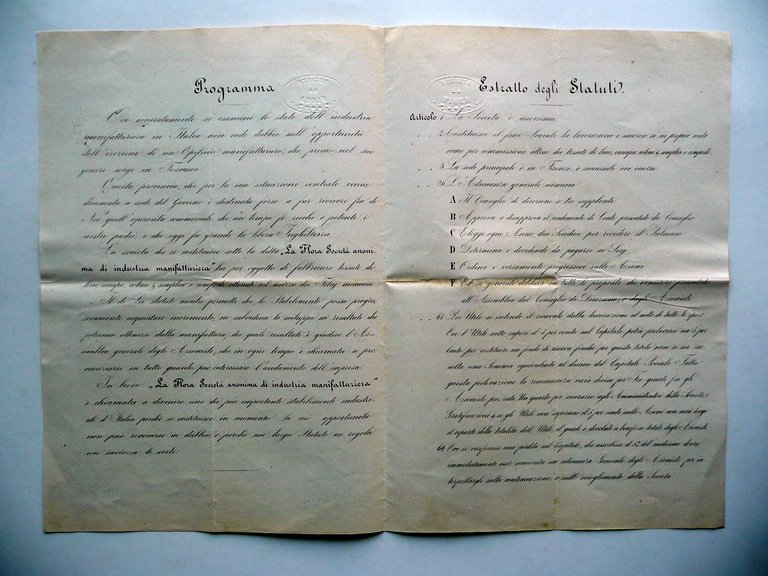 Programma
Ove accuratamente se esamini lo stato dell'industria
manifatturiera in Italia non cade dubbio sull'opportunità
dell'erezione di un Opificio manifatturiero, che primo nel suo
genere sorge in Toscana
Questa provincia, che per la sua situazione centrale venne
chiamata a sede del Governo è destinata forse a far rivivere fra di
Noi quell'operosità commerciale che un tempo fe ricchi e potenti i
nostri padri, e che oggi fa grande la libera Inghilterra.
La società che si costituisce sotto la ditta „La Flora Società anoni-
ma di industria manifatturiera" ha per oggetto di fabbricare tessuti di
lino, canapa, cotone, semplici e composti col mezzo dei Telaj meccanici
Il di Lei statuto mentre permette che lo Stabilimento possa progres-
sivamente acquistare incremento, ne subordina lo sviluppo ai resultati che
potranno ottenersi dalla manifattura, dei quali resultati è giudice l'As-
semblea generale degli Azionisti, che in ogni tempo è chiamata a pro-
nunziarsi su tutto quanto può interessare l'andamento dell'impresa.
In breve „La Flora Società anonima di industria manifatturiera"
è chiamata a divenire uno dei più importanti stabilimenti industri-
ali d'Italia perchè si costituisce in momento la cui opportunità
non può revocarsi in dubbio, e perchè un largo Statuto ne regola
con saviezza le sorti.
Estratto degli Statuti.
Articolo 1 La Società è anonima
„ 2. Costituisce il fine Sociale la lavorazione e smercio sì in proprio conto
come per commissione altrui dei tessuti di lino, canapa, cotoni, semplici e composti
„ 3. La sede principale è in Firenze e succursali ove occorra
„ 26. L'Adunanza generale nomina
A Il Consiglio di direzione e tre supplenti
B Approva o disapprova il rendimento di Conti presentato dal Consiglio
C Elegge ogni Anno due Sindaci per rivedere il Bilancio
D Determina i dividendi da pagarsi ai Soci
E Ordina i versamenti progressivi sulle Azioni
F Ed in generale delibera su tutte le proposte che venissero presentate
all'Assemblea dal Consiglio di Direzione, o dagli Azionisti
„ 61. Per Utile si intende il ricavato della lavorazione al netto di tutte le spese
Ove l'Utile netto superi il 5 per cento sul Capitale, potrà prelevarsi un 5 per
cento per costituire un fondo di riserva finchè per questo titolo non si sia rac-
colta una Somma equivalente al decimo del Capitale Sociale. Fatta
questa prelevazione la rimanenza verrà divisa per tre quarti fra gli
Azionisti per un quarto per onorario agli Amministratori della Società, e
Gratificazioni, e se gli Utili non superano il 5 per cento sulle Azioni non avrà luogo
il riparto della totalità dell'Utile, il quale è devoluto a benefizio totale degli Azionisti
„ 64. Ove si verificasse una perdita sul Capitale, che ascendesse il 5º del medesimo dovrà
immediatamente esser convocata un adunanza Generale degli Azionisti per in-
terpellargli sulla continuazione, o sullo scioglimento della Società